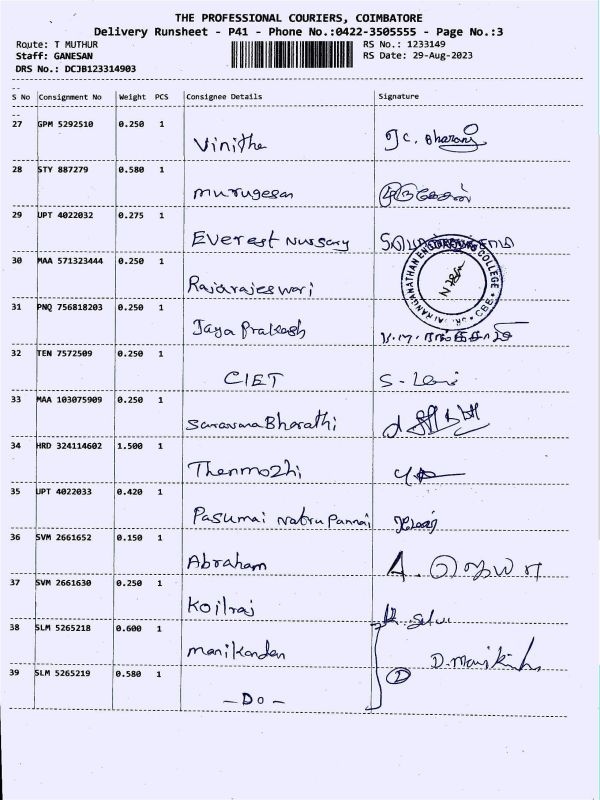 THE PROFESSIONAL COURIERS, COIMBATORE
Delivery Runsheet - P41 - Phone No.:0422-3505555 - Page No.:3
Route: T MUTHUR RS No.: 1233149
Staff: GANESAN RS Date: 29-Aug-2023
DRS No.: DCJB123314903
S No Consignment No Weight PCS Consignee Details Signature
27 GPM 5292510 0.250 1
Vinitha
28 STY 887279 0.580 1
murugesan முருகேசன்
29 UPT 4022032 0.275 1
Everest Nursary
30 MAA 571323444 0.250 1
Rajarajeswari
31 PNQ 756818203 0.250 1
Jaya Prakash
32 TEN 7572509 0.250 1
CIET
33 MAA 103075909 0.250 1
Saravana Bharathi
34 HRD 324114602 1.500 1
Thenmozhi
35 UPT 4022033 0.420 1
Pasumai Natru Pannai
36 SVM 2661652 0.150 1
Abraham
37 SVM 2661630 0.250 1
Koilraj
38 SLM 5265218 0.600 1
manikandan
39 SLM 5265219 0.580 1
- Do -